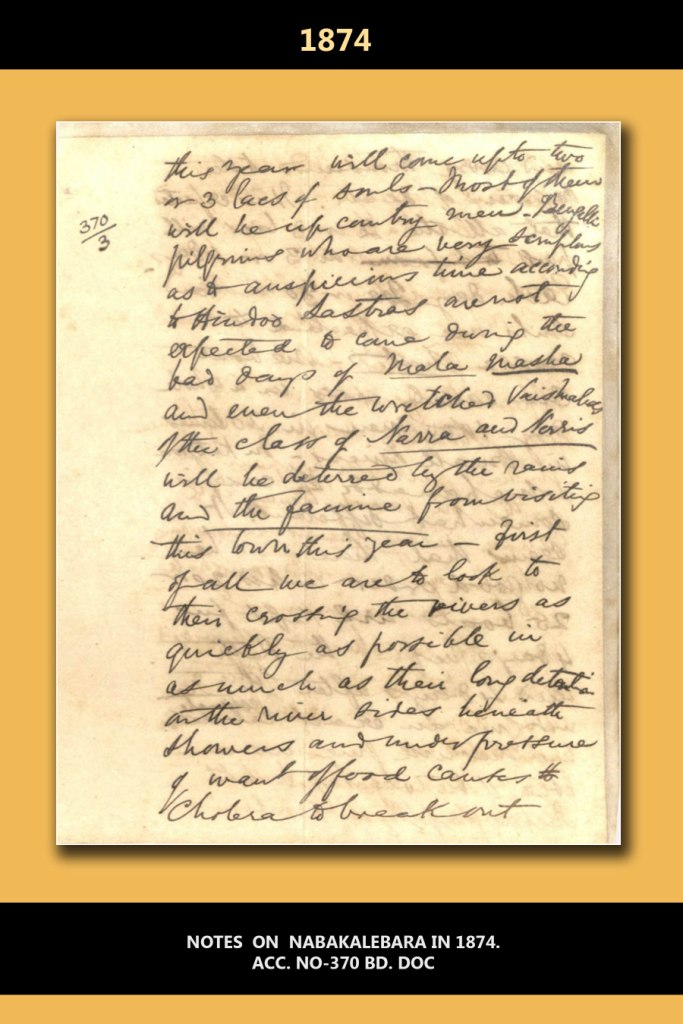 1874
370/3
this year will come upto two
or 3 lacs of souls – Most of them
will be up country men – Bengalli
pilgrims who are very scruplus
as to auspicious time according
to Hindoo Sastras are not
expected to come during the
bad days of Mala masha
and even the wretched Vaishnabas
of the class of Narra and Nerris
will be deterred by the rains
and the famine from visiting
this town this year – First
of all we are to look to
their crossing the rivers as
quickly as possible in
as much as their long detention
on the river sides beneath
showers and under pressure
of want of food causes
Cholera to break out
NOTES ON NABAKALEBARA IN 1874.
ACC. NO-370 BD. DOC